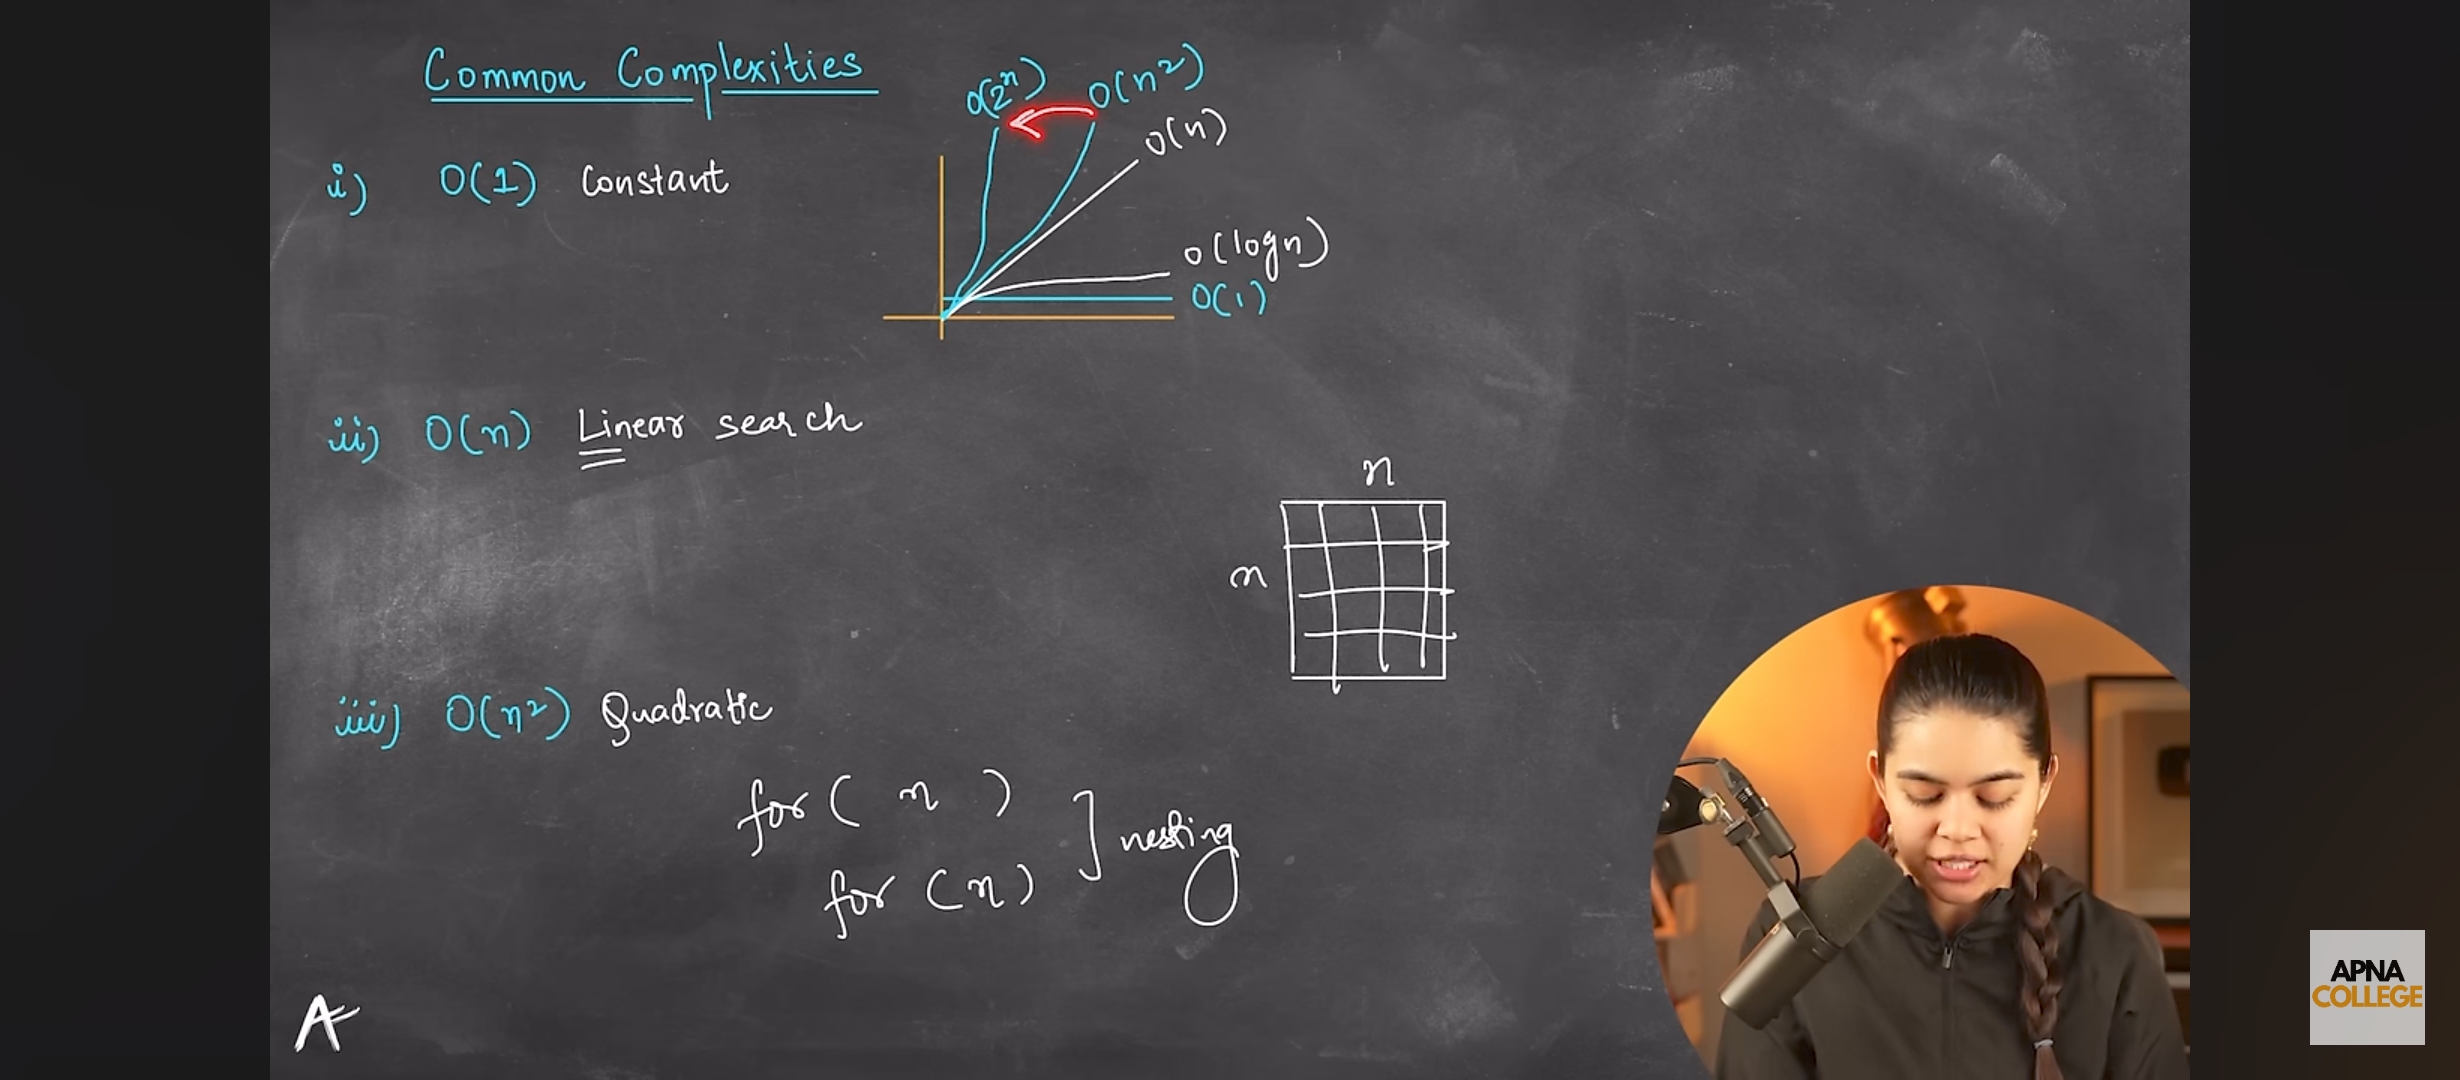 Common Complexities
O(2ⁿ)
O(n²)
O(n)
O(logn)
O(1)
i) O(1) Constant
ii) O(n) Linear search
n
n
iii) O(n²) Quadratic
for ( n )
for (n)
nesting
A
APNA
COLLEGE